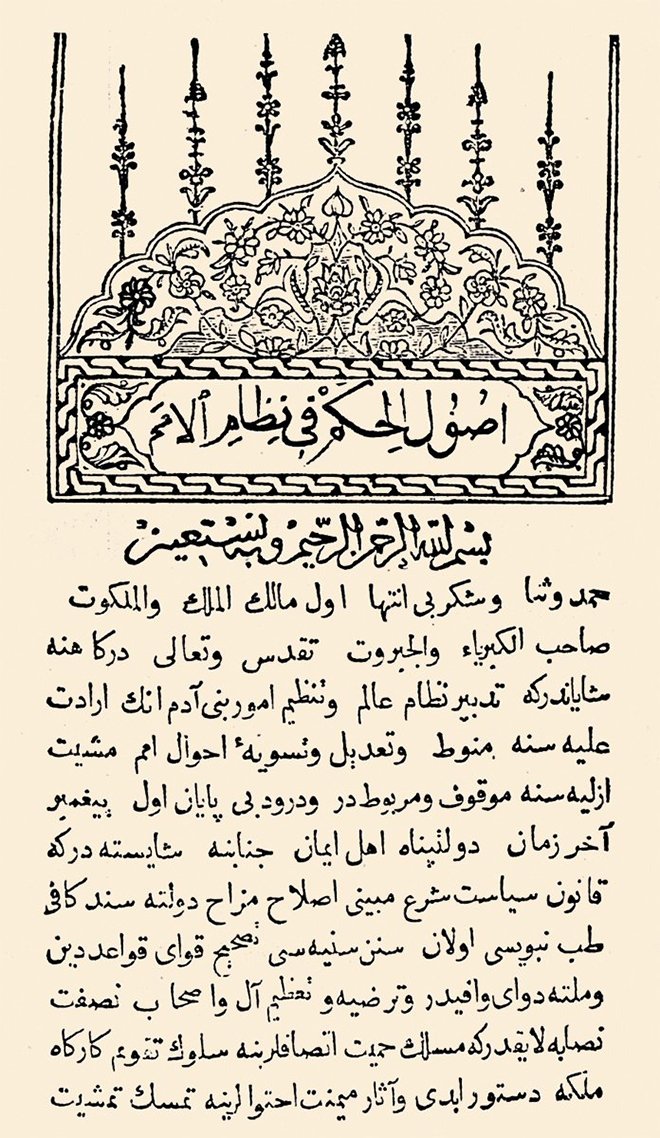 اصول الحكم فی نظام الامم
بسم الله الرحمن الرحیم وبه نستعین
حمد وثنا وشكر بی انتها اول مالك الملك والملكوت
صاحب الكبریاء والجبروت تقدس وتعالی دركاهنه
شایاندركه تدبیر نظام عالم وتنظیم امور بنی آدم انك ارادت
علیه سنه منوط وتعدیل وتسویهٔ احوال امم مشیت
ازلیه سنه موقوف ومربوطدر ودرود بی پایان اول پیغمبر
آخر زمان دولتپناه اهل ایمان جنابنه شایسته دركه
قانون سیاست شرع مبینی اصلاح مزاح دولته سند كافی
طب نبویسی اولان سنن سنیه سی تصحیح قوای قواعد دین
وملته دوای وافیدر وترضیه و تعظیم آل واصحاب نصفت
نصابه لایقدركه مسالك حمیت انصافلرینه سلوك تقویم كاركاه
ملكه دستور ابدی وآثار میمنت احتوالرینه تمسك تمشیت